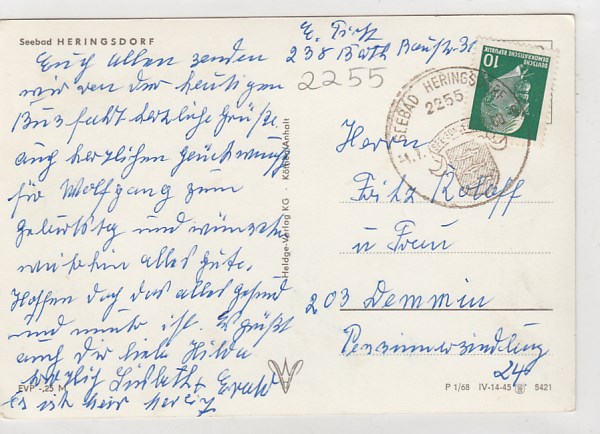 Seebad HERINGSDORF
Euch allen senden
wir von der heutigen
Busfahrt herzliche Grüße
auch herzlichen Glückwunsch
für Wolfgang zum
Geburtstag und wünschen
weiterhin alles Gute.
Hoffen daß das alles gesund
und munter ist. Es grüßt
auch Dir liebe Hilda
herzlich Lisbeth + Ewald
Es ist hier herrlich
EVP -,25 M
Heldge-Verlag KG · Köthen/Anhalt
238 Barth Baustr. 31
2255
10
DEUTSCHE
DEMOKRATISCHE REPUBLIK
SEEBAD HERINGSDORF
2255
Herrn
Fritz
u Frau
203 Demmin
Pensinerversiedlung
24
P 1/68 IV-14-45 5421